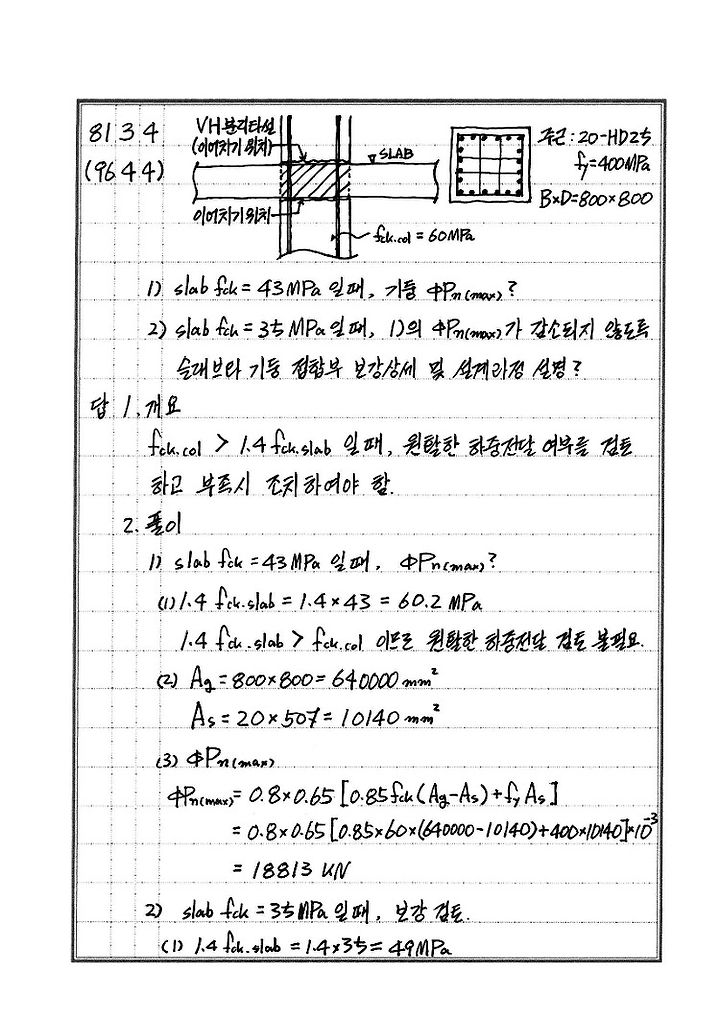 8134
(9644)
VH분리타설
(이어치기 위치)
SLAB
이어치기위치
fck.col = 60MPa
주근 : 20-HD25
fy=400MPa
B×D=800×800
1) slab fck = 43MPa 일때, 기둥 ΦPn(max) ?
2) slab fck = 35MPa일때, 1)의 ΦPn(max)가 감소되지 않도록
슬래브와 기둥 접합부 보강상세 및 설계과정 설명?
답 1. 개요
fck.col > 1.4 fck.slab 일때, 원활한 하중전달 여부를 검토
하고 부족시 조치하여야 함.
2. 풀이
1) slab fck = 43MPa 일때, ΦPn(max)?
(1) 1.4 fck.slab = 1.4×43 = 60.2 MPa
1.4 fck.slab > fck.col 이므로 원활한 하중전달 검토 불필요.
(2) Ag = 800×800 = 640000 mm²
As = 20×507 = 10140 mm²
(3) ΦPn(max)
ΦPn(max) = 0.8×0.65 [0.85fck(Ag-As)+fyAs]
= 0.8×0.65[0.85×60×(640000-10140)+400×10140]×10⁻³
= 18813 kN
2) slab fck = 35MPa일때, 보강 검토.
(1) 1.4 fck.slab = 1.4×35 = 49MPa